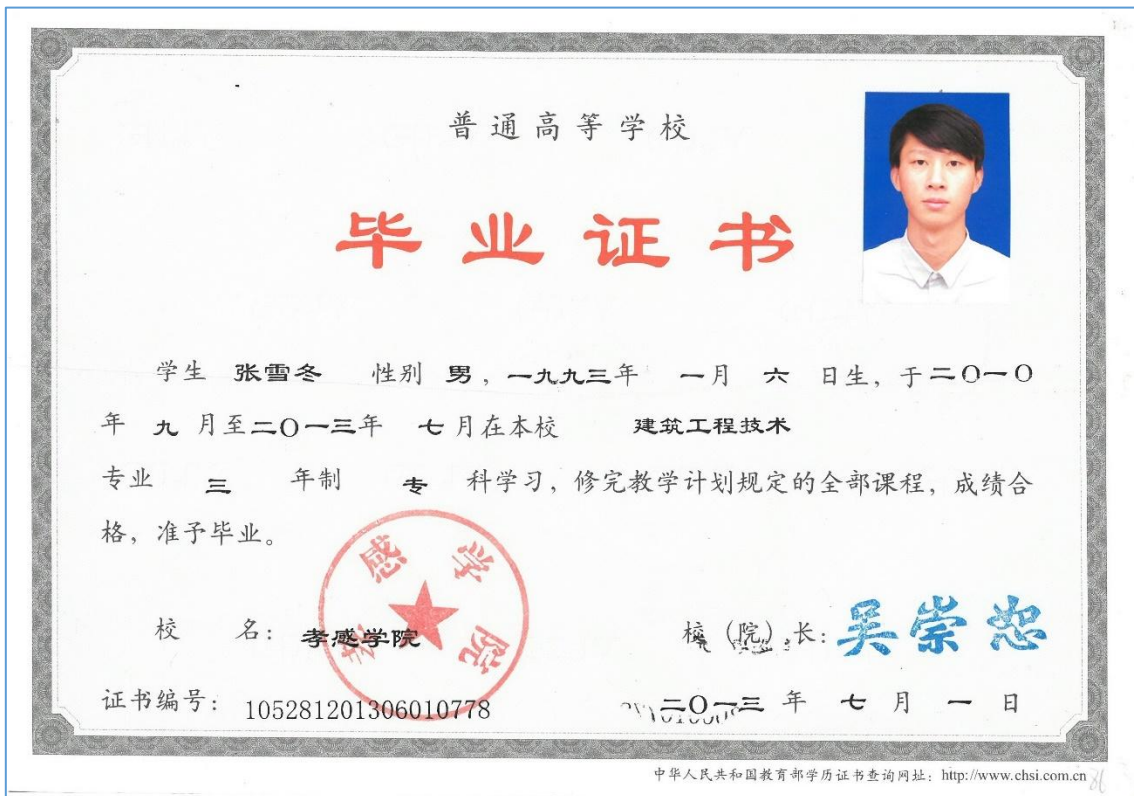 普通高等学校
毕业证书
学生 张雪冬 性别 男，一九九三年 一月 六 日生，于二〇一〇
年 九 月至二〇一三年 七月在本校 建筑工程技术
专业 三 年制 专 科学习，修完教学计划规定的全部课程，成绩合
格，准予毕业。
孝感学院
校 名：孝感学院 校（院）长：吴崇恕
证书编号：105281201306010778 二〇一三 年 七 月 一 日
中华人民共和国教育部学历证书查询网址：http://www.chsi.com.cn